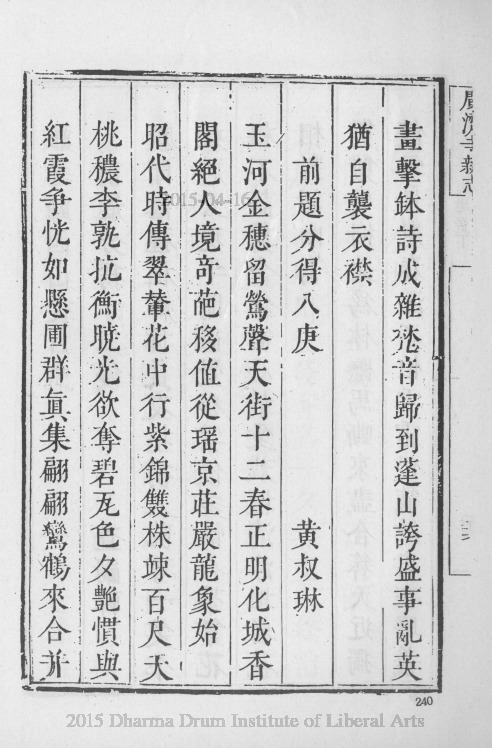 廣濟寺新志
畫擊鉢詩成雜梵音歸到蓬山誇盛事亂英
猶自襲衣襟
前題分得八庚 黃叔琳
玉河金穗留鶯聲天街十二春正明化城香
閣絕人境奇葩移值從瑶京莊嚴龍象始
昭代時傳翠輦花中行紫錦雙株竦百尺天
桃穠李孰抗衡曉光欲奪碧瓦色夕艷慣與
紅霞争恍如懸圃群眞集翩翩鸞鶴來合并
240
2015-04-16
2015 Dharma Drum Institute of Liberal Arts